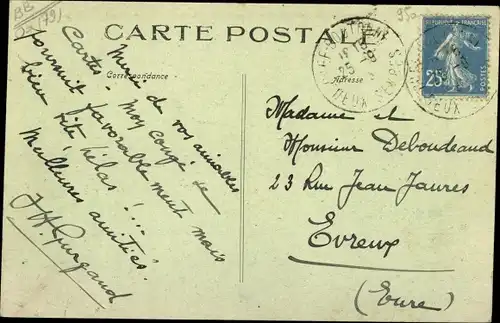 BB
(79)
95
CARTE POSTALE
Correspondance
Adresse
RÉPUBLIQUE FRANÇAISE
25c
POSTES
DEUX SEVRES
DEUX
Merci de vos aimables
Cartes. Mon congé se
poursuit favorablement mais
bien vite hélas!...
Meilleures amitiés.
Madame et
Monsieur Deboudeaud
23 Rue Jean Jaures
Evreux
(Eure)